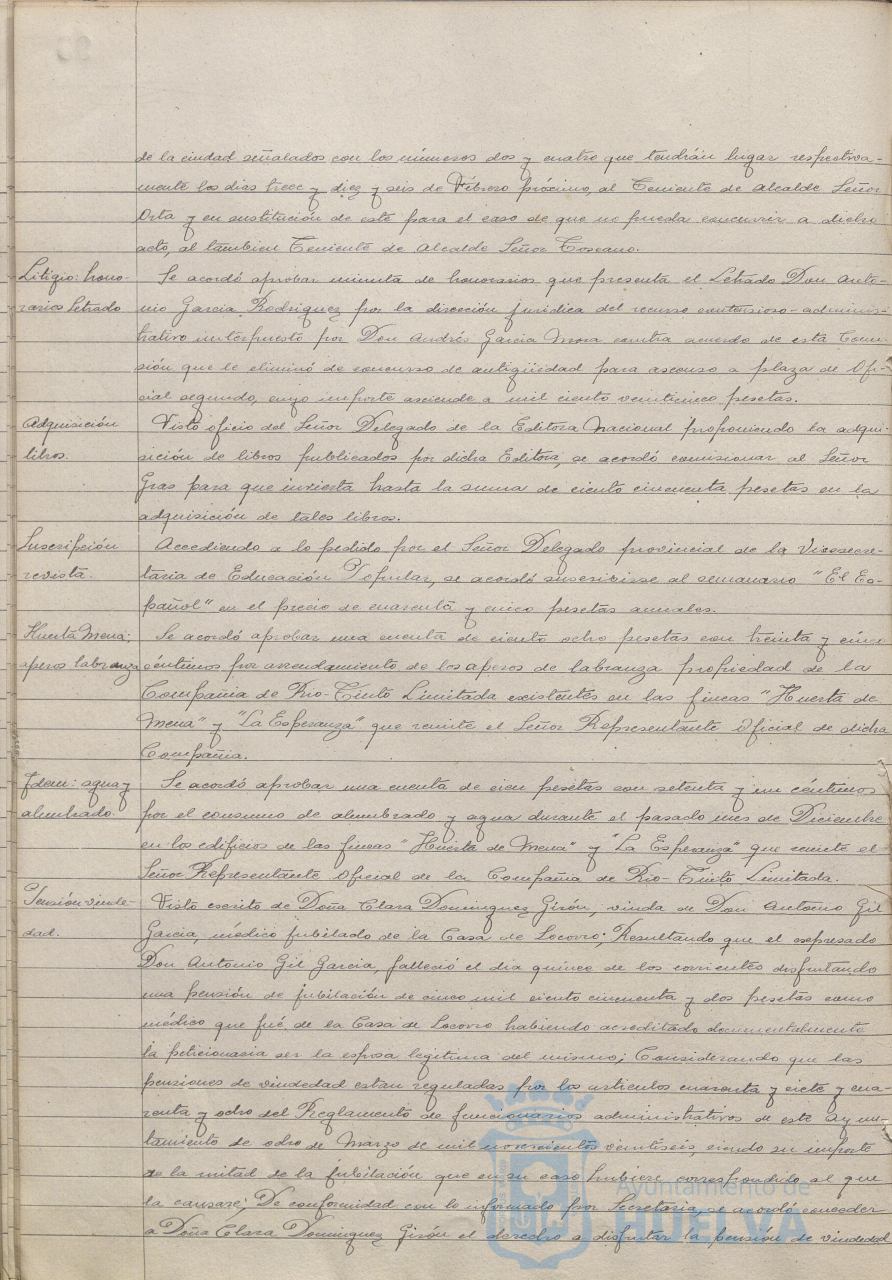 de la ciudad señalados con los números dos y cuatro que tendrán lugar respectiva-
mente los dias trece y diez y seis de Febrero prócimo, al Teniente de Alcalde Señor
Orta y en sustitución de este para el caso de que no pueda concurrir a dicho
acto, al tambien Teniente de Alcalde Señor Toscano.
Litigio: hono-
rarios Letrado
Se acordó aprobar minuta de honorarios que presenta el Letrado Don Anto-
nio Garcia Rodriguez por la dirección juridica del recurso contencioso-adminis-
trativo interpuesto por Don Andrés Garcia Mora contra acuerdo de esta Comi-
sión que le eliminó de concurso de antigüedad para ascenso a plaza de Ofi-
cial segundo, cuyo importe asciende a mil ciento veinticinco pesetas.
Adquisición
libros.
Visto oficio del Señor Delegado de la Editora Nacional proponiendo la adqui-
sición de libros publicados por dicha Editora, se acordó comisionar al Señor
Gras para que invierta hasta la suma de ciento cincuenta pesetas en la
adquisición de tales libros.
Suscripción
revista.
Accediendo a lo pedido por el Señor Delegado provincial de la Vicesecre-
taria de Educación Popular, se acordó suscribirse al semanario "El Es-
pañol" en el precio de cuarenta y cinco pesetas anuales.
Huerta Mena;
aperos labranza
Se acordó aprobar una cuenta de ciento ocho pesetas con treinta y cinco
céntimos por arrendamiento de los aperos de labranza propiedad de la
Compañia de Rio-Tinto Limitada existentes en las fincas "Huerta de
Mena" y "La Esperanza" que remite el Señor Representante Oficial de dicha
Compañia.
Idem: agua y
alumbrado
Se acordó aprobar una cuenta de cien pesetas con setenta y un céntimos
por el consumo de alumbrado y agua durante el pasado mes de Diciembre
en los edificios de las fincas "Huerta de Mena" y "La Esperanza" que remite el
Señor Representante Oficial de la Compañia de Rio-Tinto Limitada.
Pensión viude-
dad.
Visto escrito de Doña Clara Dominguez Girón, viuda de Don Antonio Gil
Garcia, médico jubilado de la Casa de Socorro; Resultando que el expresado
Don Antonio Gil Garcia, falleció el dia quince de los corrientes disfrutando
una pensión de jubilación de cinco mil ciento cincuenta y dos pesetas como
médico que fué de la Casa de Socorro habiendo acreditado documentalmente
la peticionaria ser la esposa legitima del mismo; Considerando que las
pensiones de viudedad estan reguladas por los articulos cuarenta y siete y cua-
renta y ocho del Reglamento de funcionarios administrativos de este Ayun-
tamiento de ocho de Marzo de mil novecientos veintiseis, siendo su importe
de la mitad de la jubilación que en su caso hubiere correspondido al que
la causare; De conformidad con lo informado por Secretaria, se acordó conceder
a Doña Clara Dominguez Girón el derecho a disfrutar la pensión de viudedad
Ayuntamiento de
HUELVA